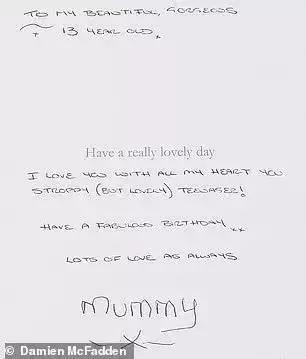 TO MY BEAUTIFUL, GORGEOUS
13 YEAR OLD x
Have a really lovely day
I LOVE YOU WITH ALL MY HEART YOU
STROPPY (BUT LOVELY) TEENAGER!
HAVE A FABULOUS BIRTHDAY xx
LOTS OF LOVE AS ALWAYS
MUMMY
x
© Damien McFadden